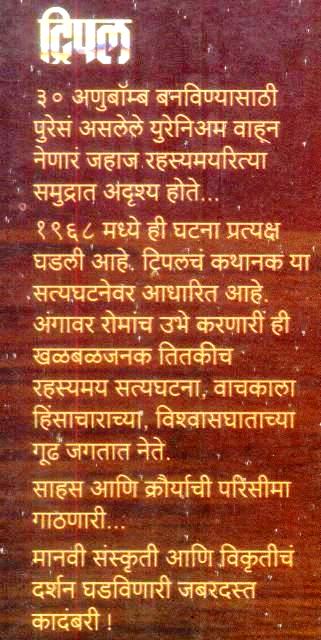 ट्रिपल
३० अणुबॉम्ब बनविण्यासाठी
पुरेसं असलेले युरेनिअम वाहून
नेणारं जहाज रहस्यमयरित्या
समुद्रात अदृश्य होते...
१९६८ मध्ये ही घटना प्रत्यक्ष
घडली आहे. ट्रिपलचं कथानक या
सत्यघटनेवर आधारित आहे.
अंगावर रोमांच उभे करणारी ही
खळबळजनक तितकीच
रहस्यमय सत्यघटना, वाचकाला
हिंसाचाराच्या, विश्वासघाताच्या
गूढ जगतात नेते.
साहस आणि क्रौर्याची परिसीमा
गाठणारी...
मानवी संस्कृती आणि विकृतीचं
दर्शन घडविणारी जबरदस्त
कादंबरी !